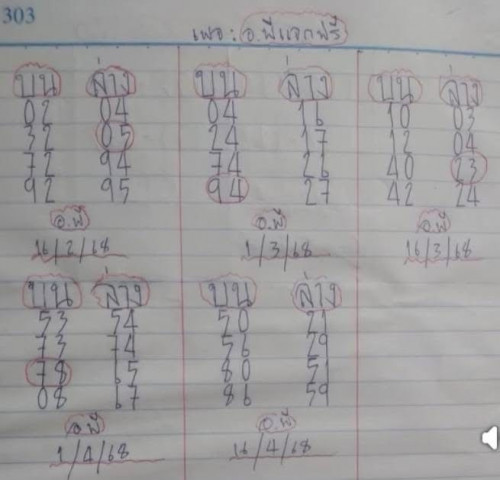 303
เพจ : อ.พีแจกฟรี
บน ล่าง
02 04
32 05
72 94
92 95
อ.พี
16/2/68
บน ล่าง
04 16
24 17
74 26
94 27
อ.พี
1/3/68
บน ล่าง
10 03
12 04
40 23
42 24
อ.พี
16/3/68
บน ล่าง
53 54
73 74
78 65
08 67
อ.พี
1/4/68
บน ล่าง
50 21
56 29
80 51
86 59
อ.พี
16/4/68